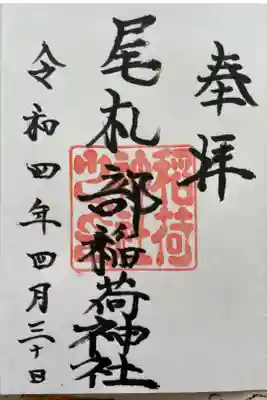 奉拝
尾札部稲荷神社
令和四年四月三十日